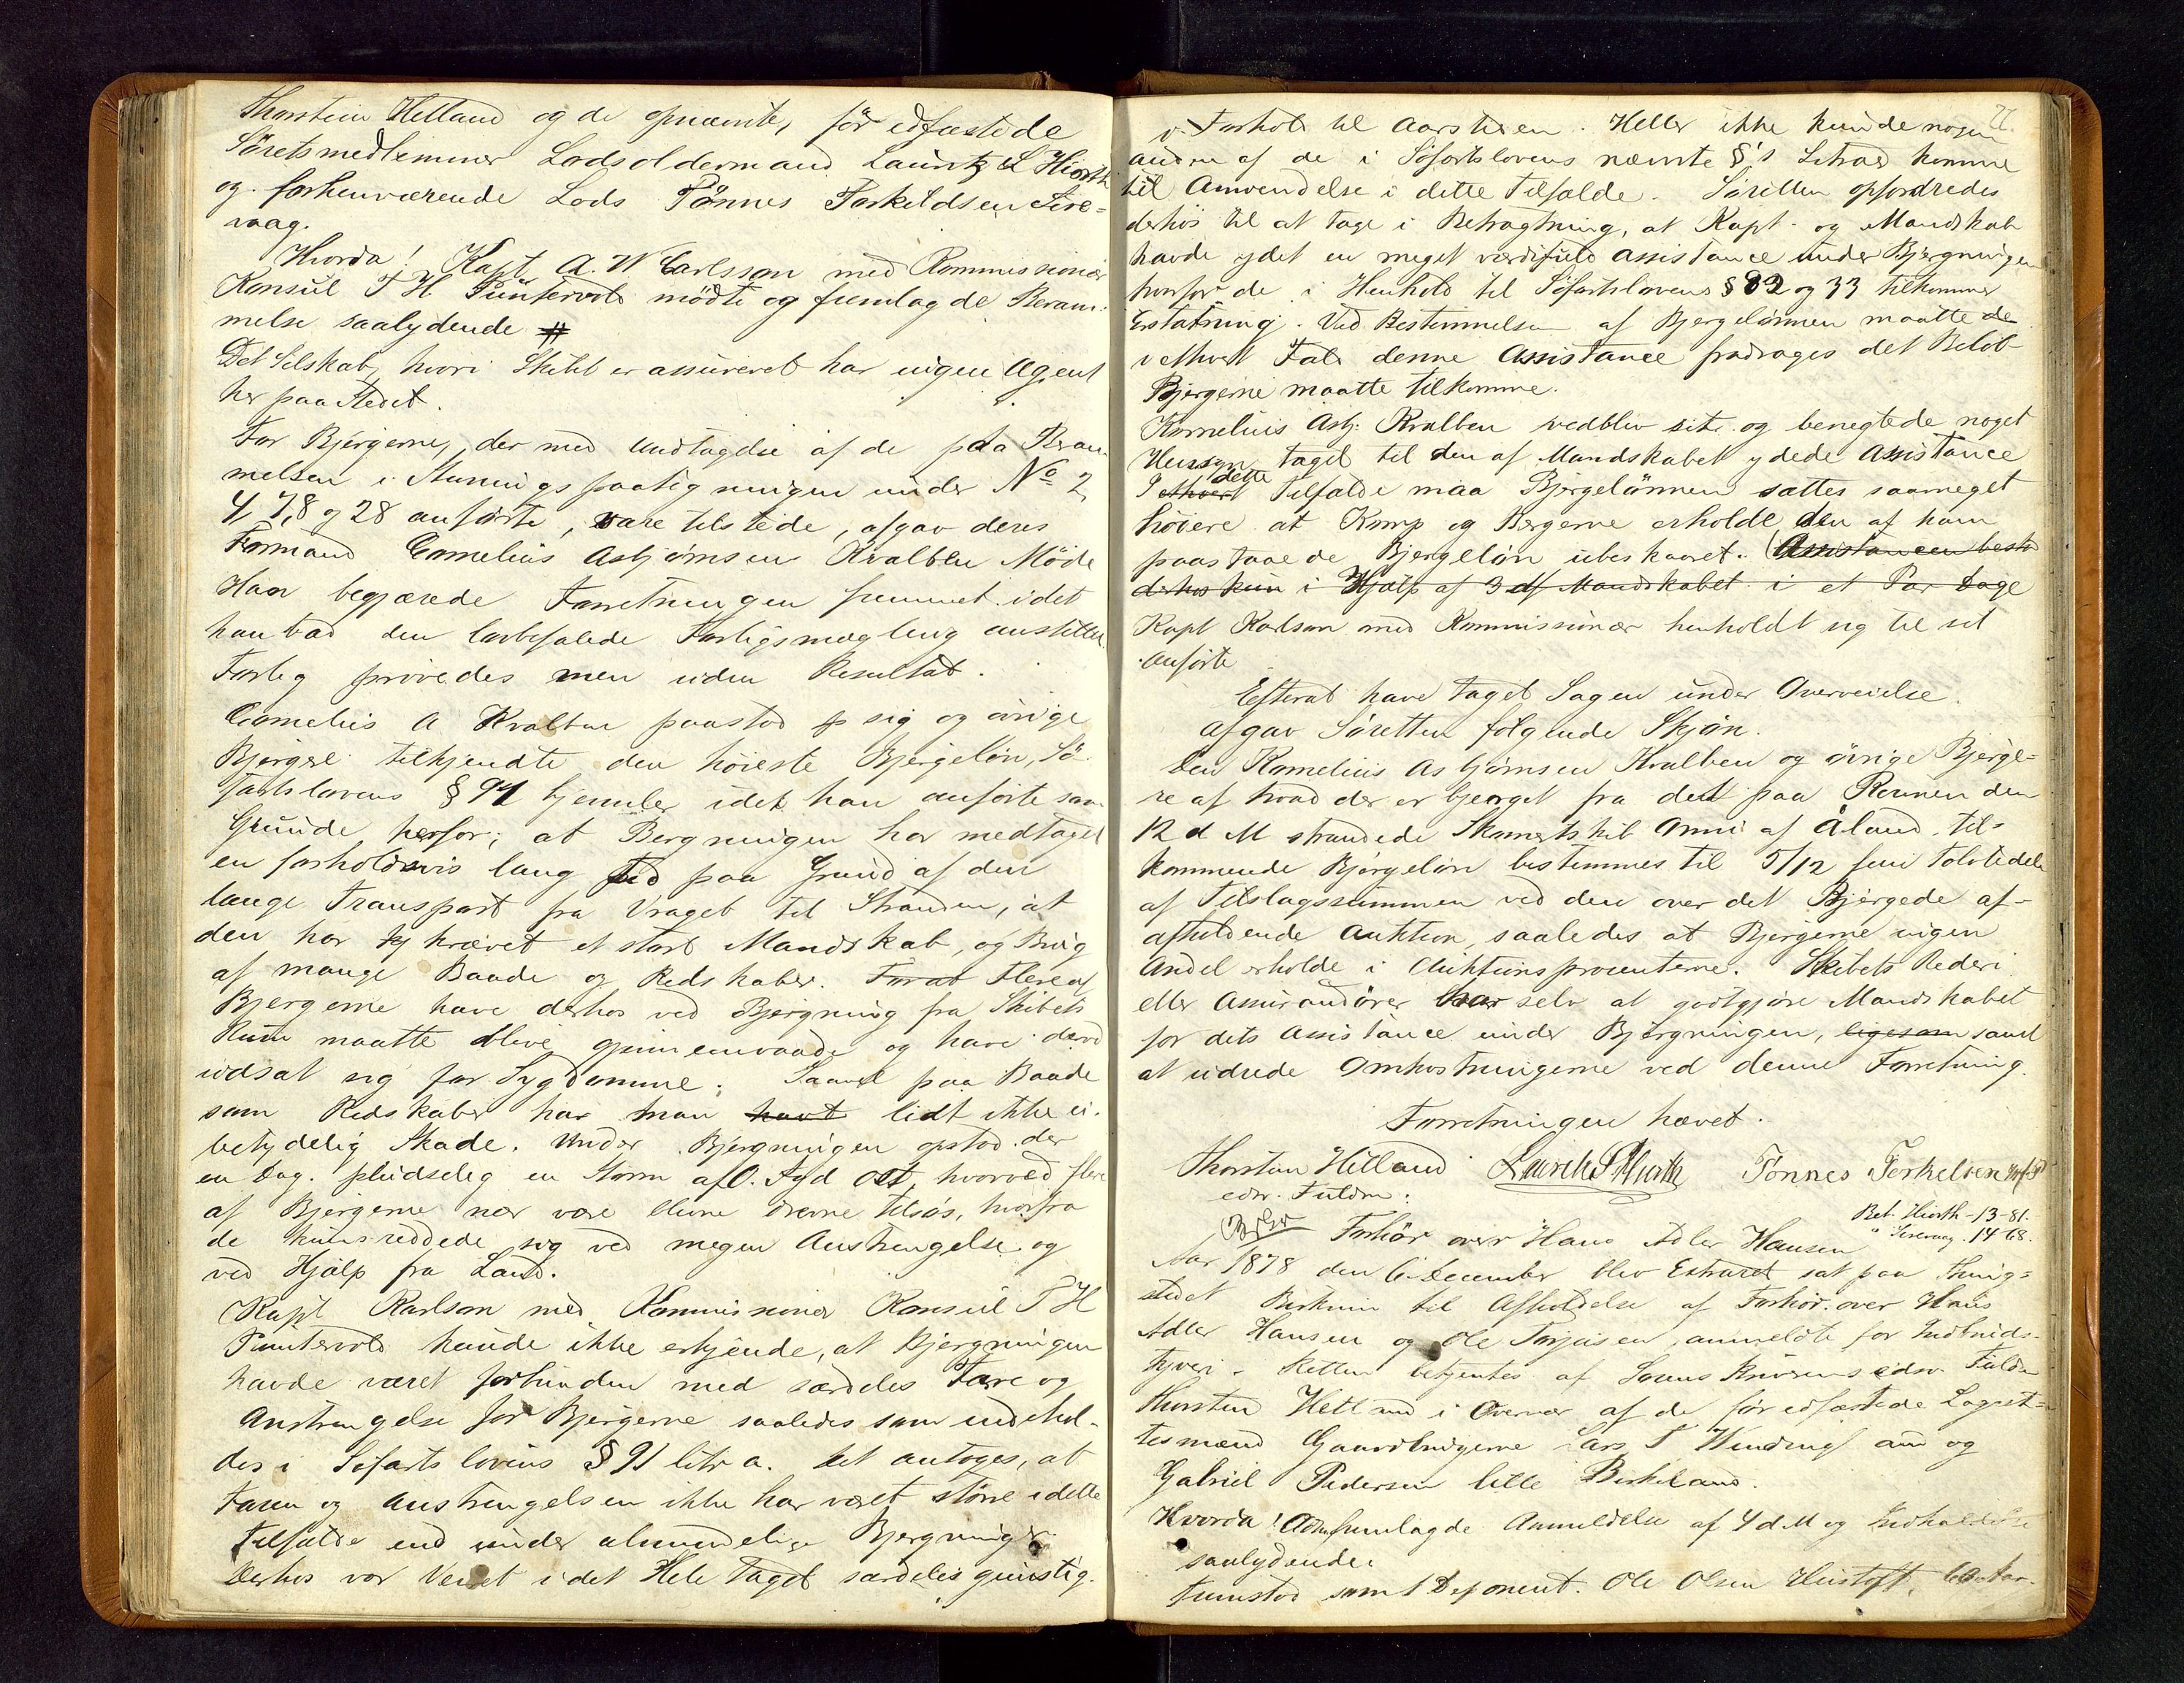 Thorstein Hetland og de opnævnte, før edfæstede
Søretsmedlemmer Lodsoldermand Lauritz L Hiorth
og forhenværende Lods Tønnes Torkildsen Sire-
vaag.
Hvorda! Kapt A. W Carlsson med Kommissionær
Konsul T H Puntervold mødte og fremlagde Beram-
melse saalydende #
Det Selskab, hvori Skibet er assureret har ingen Agent
her paa Stedet.
For Bjergerne, der med Undtagelse af de paa Beram-
melsen i Stevningspaategningen under No 2,
4, 7, 8 og 28 anførte, vare tilstede, afgav deres
Formand Cornelius Asbjørnsen Kvalben Møde
Han begjærede Forretningen fremmet idet
han bad den lovbefalede Forligsmægling anstillet
Forlig prøvedes men uden Resultat.
Cornelius A Kvalben paastod sig og øvrige
Bjergere tilkjendte den høieste Bjergeløn, Sø-
fartslovens § 94 hjemler idet han anførte som
Grunde herfor; at Bergningen har medtaget
en forholdsvis lang Tid paa Grund af den
lange Transport fra Vraget til Stranden, at
den har krævet et stort Mandskab, og Brug
af mange Baade og Redskaber. Forat Flere af
Bjergerne have derhos ved Bjergning fra Skibets
Rum maatte blive gjennemvaade og have derved
udsat sig for Sygdomme. Saavel paa Baade
som Redskaber har man havt lidt ikke u-
betydelig Skade. Under Bjergningen opstod der
en Dag pludselig en Storm af O. Syd Ost, hvorved flere
af Bjergerne nær vare blevne drevne tilsøs, hvorfra
de kuns reddede sig ved megen Anstrengelse og
ved Hjælp fra Land.
Kapt Karlson med Kommissionær Konsul T H
Puntervold kunde ikke erkjende, at Bjergningen
havde været forbunden med særdeles Fare og
Anstrengelse for Bjergerne saaledes som indehol-
des i Søfartslovens § 91 litr a. Det antoges, at
Faren og Anstrengelsen ikke har været større i dette
Tilfælde end under almindelige Bjergninger
Derhos var Veiret i det Hele taget særdeles gunstig
22.
i Forhold til Aarstiden. Heller ikke kunde nogen
anden af de i Søfartslovens nævnte §'s Litraer komme
til Anvendelse i dette Tilfælde. Søretten opfordredes
derhos til at tage i Betragtning, at Kapt. og Mandskab
havde ydet en meget værdifuld Assistance under Bjergningen
hvorfor de i Henhold til Søfartslovens § 82 og 33 tilkommer
Erstatning. Ved Bestemmelsen af Bjergelønnen maatte de
i ethvert Fald denne Assistance fradrages det Beløb
Bjergerne maatte tilkomme.
Kornelius Asbj. Kvalben vedblev sit og benegtede noget
Hensyn taget til den af Mandskabet ydede Assistance
I ethvert dette Tilfælde maa Bjergelønnen sættes saameget
høiere at Komp og Bergerne erholde den af ham
paastaaede Bjergeløn ubeskaaret. (Assistancen bestod
derhos kun i Hjælp af 3 af Mandskabet i et Par Dage
Kapt Karlson med Kommissionær henholdt sig til sit
Anførte
Efterat have taget Sagen under Overveielse
afgav Søretten følgende Skjøn.
Den Kornelius Asbjørnsen Kvalben og øvrige Bjerge-
re af hvad der er bjerget fra det paa Raunen den
12 d M strandede Skonnertskib Anni af Åland til-
kommende Bjergeløn bestemmes til 5/12 fem Tolvtedele
af Tilslagssummen ved den over det Bjergede af-
afholdende Auktion, saaledes at Bjergerne ingen
Andel erholde i Auktionsprocenterne. Skibets Rederi
eller Assurandører har selv at godtgjøre Mandskabet
for dets Assistance under Bjergningen, ligesom samt
at udrede Omkostningerne ved denne Forretning.
Forretningen hævet.
Thorstein Hetland Lauritz L Hiorth Tønnes Torkelsen
edsv. Fuldm.
Bet. Hiorth - 13-81.
" Sirevaag. 14-68.
Forhør over Hans Adler Hansen
Aar 1878 den 6 December blev Extraret sat paa Thing-
stedet Birkrem til Afholdelse af Forhør over Hans
Adler Hansen og Ole Torjusen, anmeldte for Indbruds-
tyveri. Retten betjentes af Sorenskriverens edsv. Fuldm
Thorstein Hetland i Overvær af de før edfæstede Lagret-
tesmænd Gaardbrugerne Lars T Vindingland og
Gabriel Pedersen lille Birkeland.
Hvorda! Adm. fremlagde Anmeldelse af 4 d M og
saalydende.
Fremstod som 1 Deponent. Ole Olsen